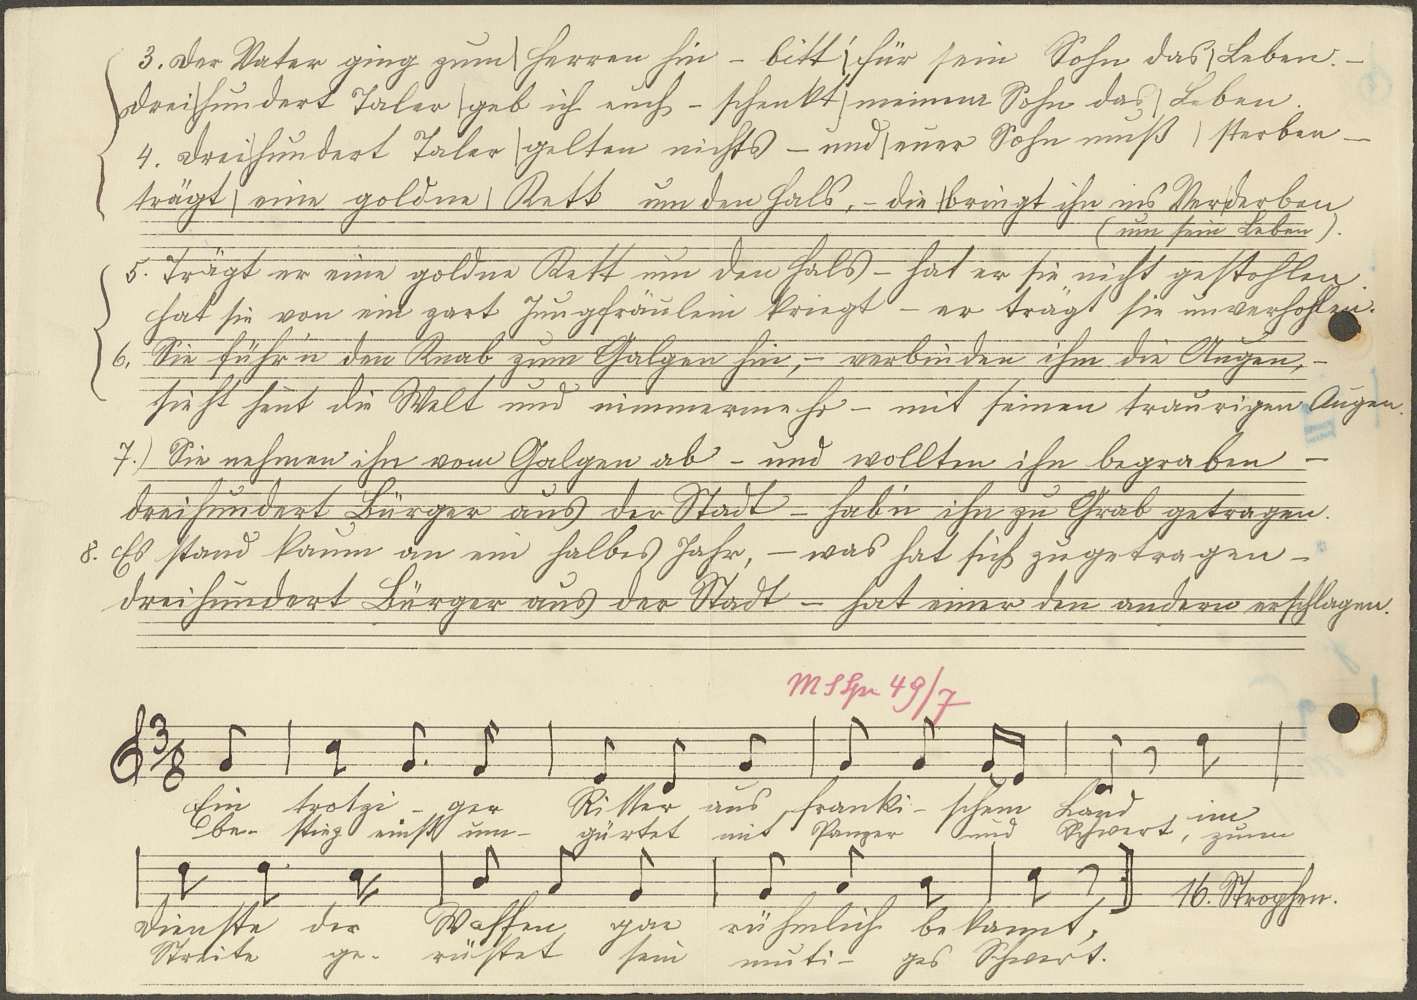 3. Der Vater ging zum | Herren hin – bitt' | für sein Sohn das | Leben. –
Drei | hundert Taler | geb ich euch – schenkt | meinem Sohn das | Leben.
4. Drei | hundert Taler | gelten nichts – und | euer Sohn muß | sterben –
trägt | eine goldne | Kett um den Hals, – die | bringt ihn ins Ver | derben
(um sein Leben).
5. Trägt er eine goldne Kett um den Hals – hat er sie nicht gestohlen
hat sie von ein zart Jungfräulein kriegt – er trägt sie unverhohlen.
6. Sie führ'n den Knab zum Galgen hin, – verbinden ihm die Augen, –
sieht heut die Welt und nimmermehr – mit seinen traurigen Augen.
7.) Sie nehmen ihn vom Galgen ab – und wollten ihn begraben –
dreihundert Bürger aus der Stadt – hab'n ihn zu Grab getragen.
8. Es stand kaum an ein halbes Jahr, – was hat sich zugetragen –
dreihundert Bürger aus der Stadt – hat einer den andern erschlagen.
49/7
3/8
Ein trotzi – ger Ritter aus franki – schem Land im
be – stieg einst um – gürtet mit Panzer und Schwert, zum
Dienste der Waffen gar rühmlich bekannt,
16. Strophen.
Streite ge – rüstet sein muti – ges Schwert.